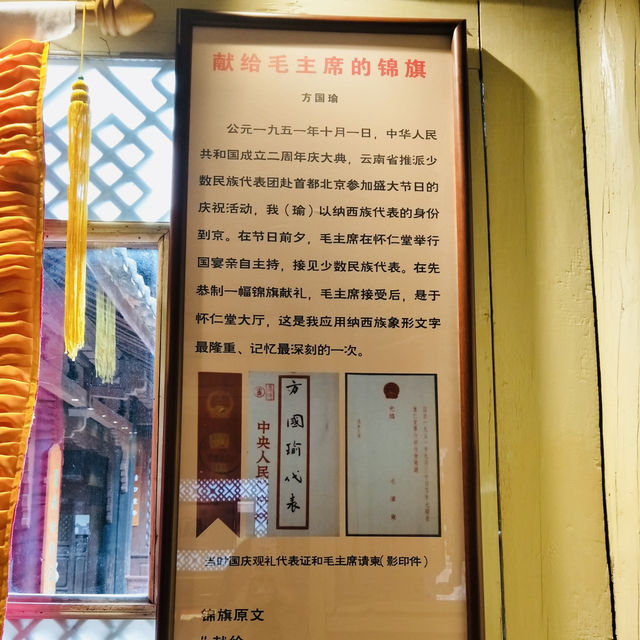 献给毛主席的锦旗
方国瑜
公元一九五一年十月一日，中华人民
共和国成立二周年庆大典，云南省推派少
数民族代表团赴首都北京参加盛大节日的
庆祝活动，我（瑜）以纳西族代表的身份
到京。在节日前夕，毛主席在怀仁堂举行
国宴亲自主持，接见少数民族代表。在先
恭制一幅锦旗献礼，毛主席接受后，悬于
怀仁堂大厅，这是我应用纳西族象形文字
最隆重、记忆最深刻的一次。
中央人民
方國瑜代表
毛澤東
国庆观礼代表证和毛主席请柬（影印件）
锦旗原文